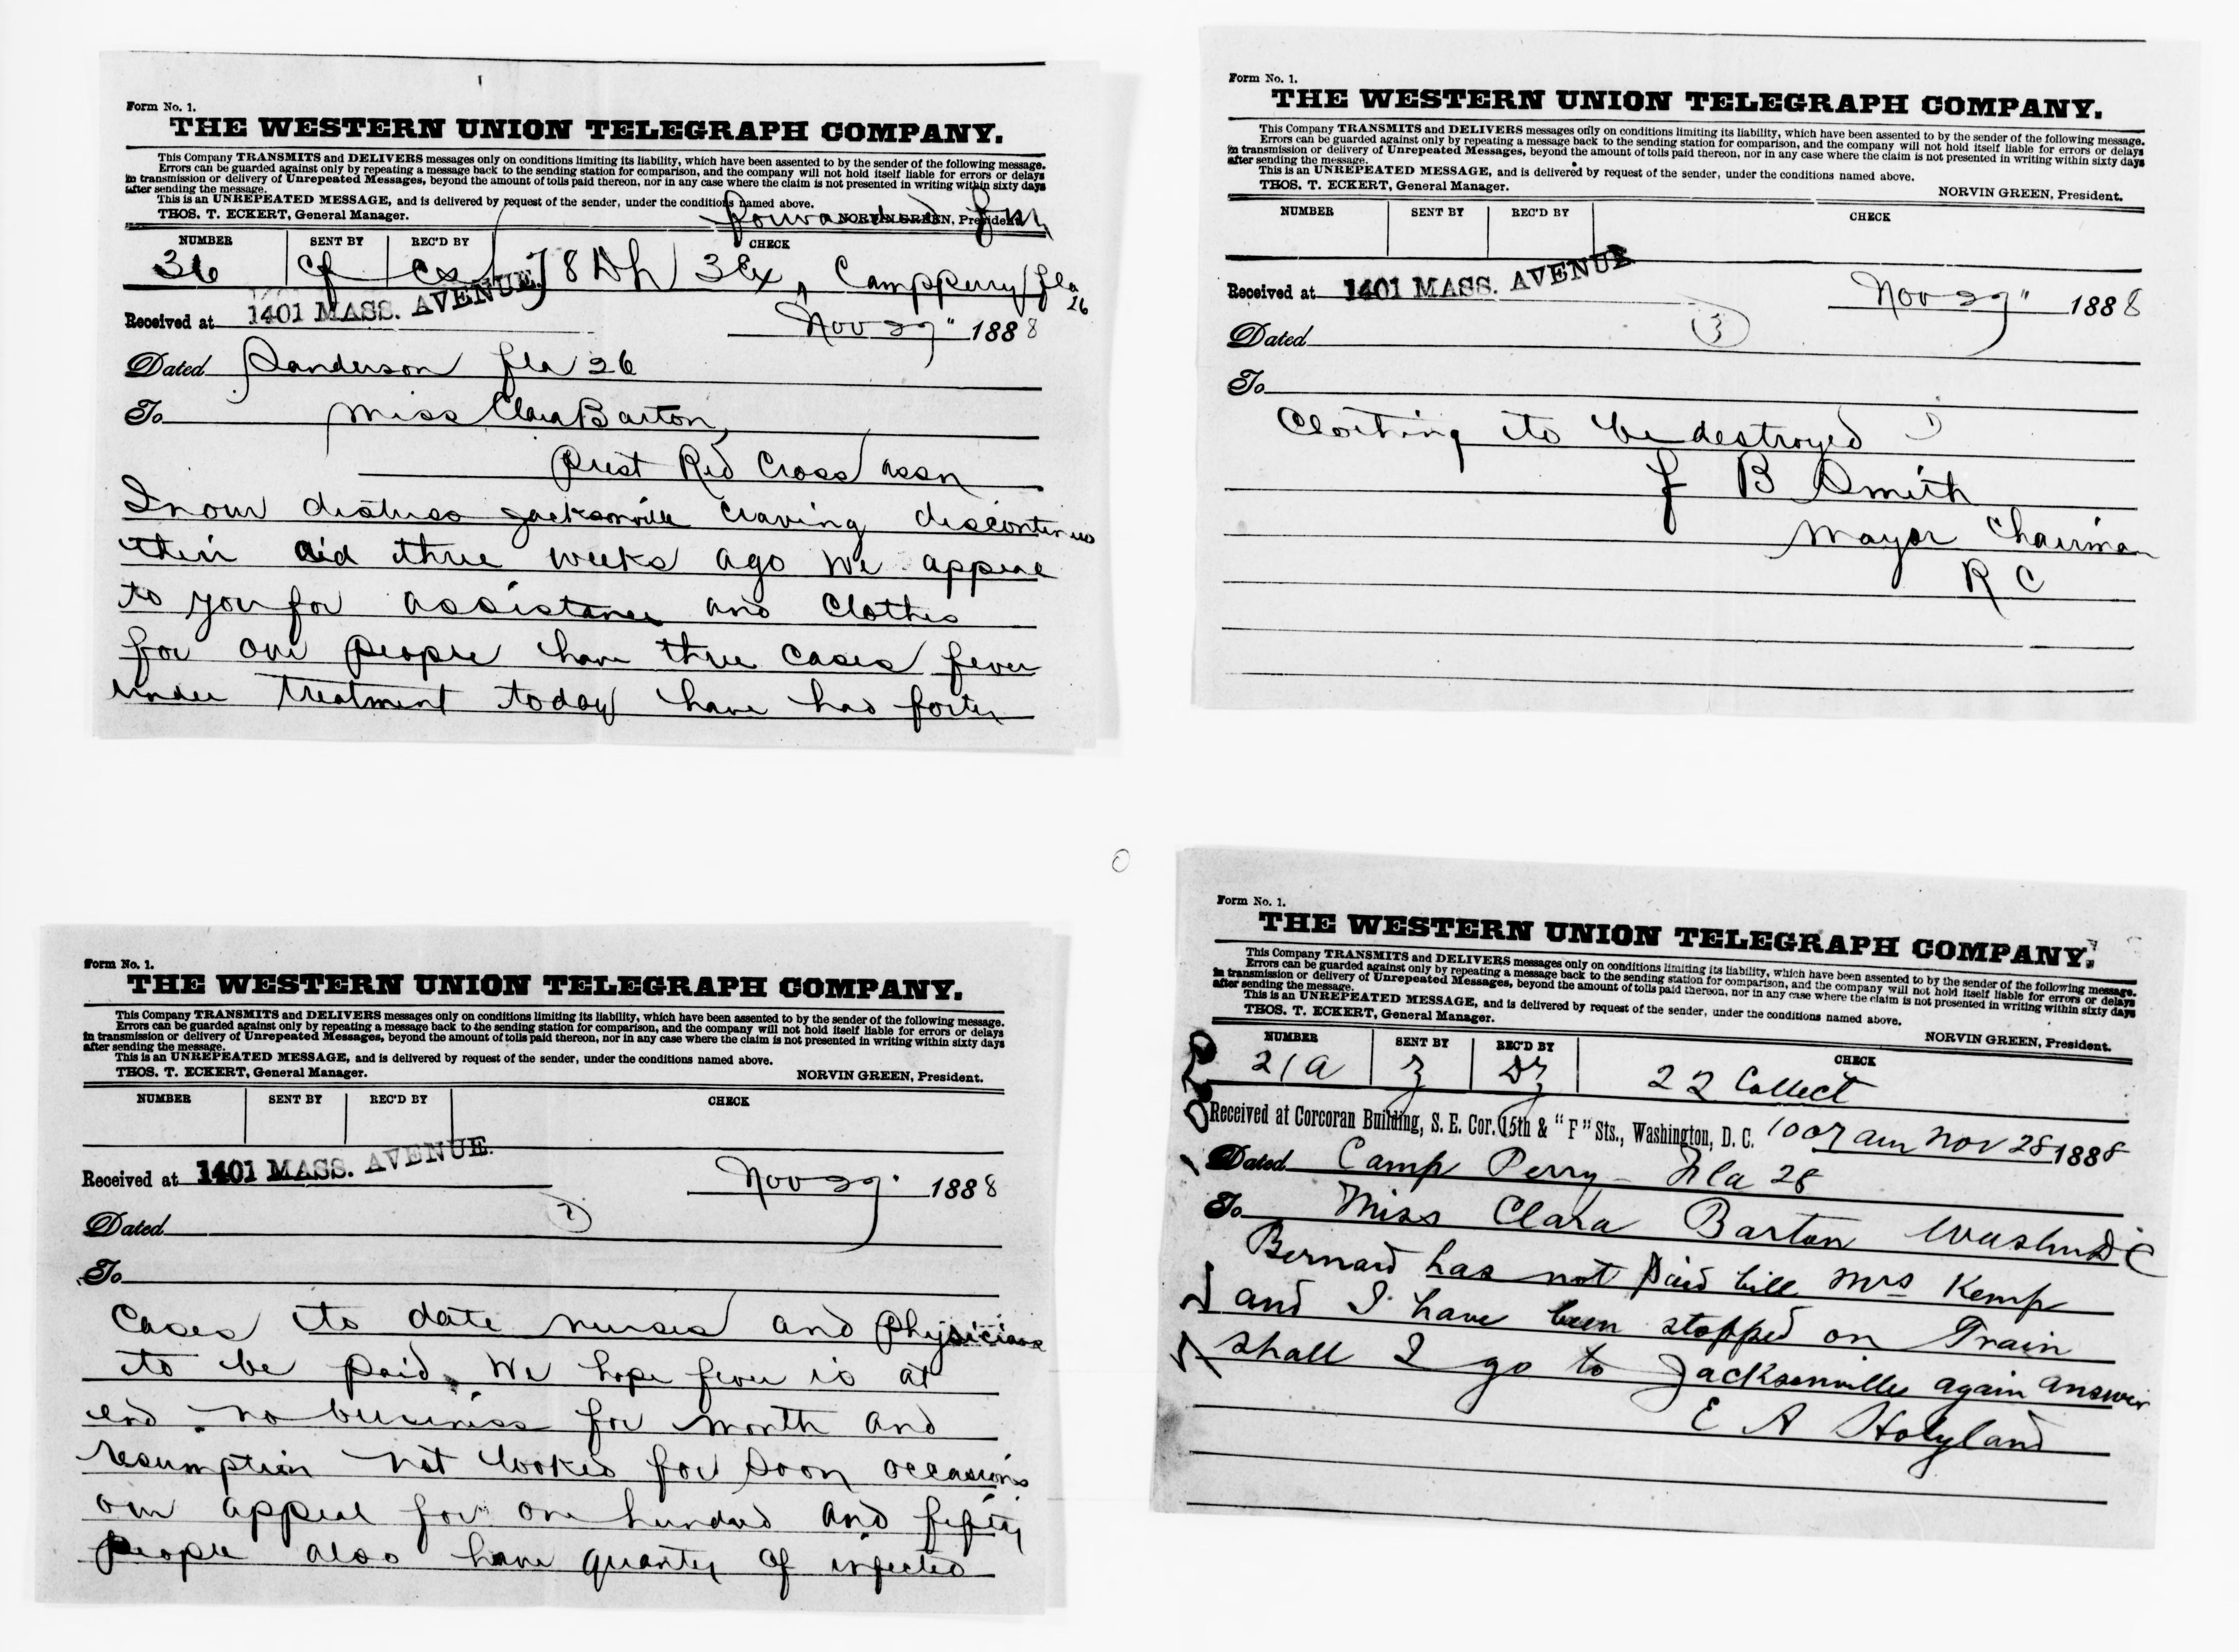 Form No. 1.
THE WESTERN UNION TELEGRAPH COMPANY.
This Company TRANSMITS and DELIVERS messages only on conditions limiting its liability, which have been assented to by the sender of the following message.
Errors can be guarded against only by repeating a message back to the sending station for comparison, and the company will not hold itself liable for errors or delays
in transmission or delivery of Unrepeated Messages, beyond the amount of tolls paid thereon, nor in any case where the claim is not presented in writing within sixty days
after sending the message.
This is an UNREPEATED MESSAGE, and is delivered by request of the sender, under the conditions named above.
THOS. T. ECKERT, General Manager. NORVIN GREEN, President.
forwarded fm
NUMBER SENT BY REC'D BY CHECK
36 Cf 78 Dh 3 Ex Camp Perry Fla
26
Received at 1401 MASS. AVENUE. Nov 29" 1888
Dated Sanderson Fla 26
To Miss Clara Barton,
Prest Red Cross assn
In our distress Jacksonville craving discontinues
their aid three weeks ago We appeal
to you for assistance and clothes
for our people have three cases fever
under treatment today have had forty
Form No. 1.
THE WESTERN UNION TELEGRAPH COMPANY.
This Company TRANSMITS and DELIVERS messages only on conditions limiting its liability, which have been assented to by the sender of the following message.
Errors can be guarded against only by repeating a message back to the sending station for comparison, and the company will not hold itself liable for errors or delays
in transmission or delivery of Unrepeated Messages, beyond the amount of tolls paid thereon, nor in any case where the claim is not presented in writing within sixty days
after sending the message.
This is an UNREPEATED MESSAGE, and is delivered by request of the sender, under the conditions named above.
THOS. T. ECKERT, General Manager. NORVIN GREEN, President.
NUMBER SENT BY REC'D BY CHECK
Received at 1401 MASS. AVENUE. Nov 29" 1888
Dated 3
To
Clothing to be destroyed
F B Smith
Mayor Chairman
R C
Form No. 1.
THE WESTERN UNION TELEGRAPH COMPANY.
This Company TRANSMITS and DELIVERS messages only on conditions limiting its liability, which have been assented to by the sender of the following message.
Errors can be guarded against only by repeating a message back to the sending station for comparison, and the company will not hold itself liable for errors or delays
in transmission or delivery of Unrepeated Messages, beyond the amount of tolls paid thereon, nor in any case where the claim is not presented in writing within sixty days
after sending the message.
This is an UNREPEATED MESSAGE, and is delivered by request of the sender, under the conditions named above.
THOS. T. ECKERT, General Manager. NORVIN GREEN, President.
NUMBER SENT BY REC'D BY CHECK
Received at 1401 MASS. AVENUE. Nov 29" 1888
Dated 2
To
Cases to date nurses and physicians
to be paid. We hope fever is at
end no business for month and
resumption not looked for soon occasions
our appeal for one hundred and fifty
people also have quanty of infected
Form No. 1.
THE WESTERN UNION TELEGRAPH COMPANY.
This Company TRANSMITS and DELIVERS messages only on conditions limiting its liability, which have been assented to by the sender of the following message.
Errors can be guarded against only by repeating a message back to the sending station for comparison, and the company will not hold itself liable for errors or delays
in transmission or delivery of Unrepeated Messages, beyond the amount of tolls paid thereon, nor in any case where the claim is not presented in writing within sixty days
after sending the message.
This is an UNREPEATED MESSAGE, and is delivered by request of the sender, under the conditions named above.
THOS. T. ECKERT, General Manager. NORVIN GREEN, President.
NUMBER SENT BY REC'D BY CHECK
21a Z DZ 22 Collect
Received at Corcoran Building, S. E. Cor. 15th & "F" Sts., Washington, D. C. 1007 am Nov 28 1888
Dated Camp Perry - Fla 28
To Miss Clara Barton Washn DC
Bernard has not paid bill Mrs Kemp
and I have been stopped on Train
shall I go to Jacksonville again answer
E A Holyland